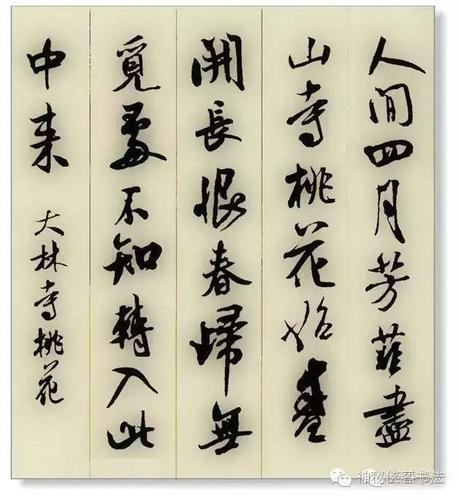 人間四月芳菲盡
山寺桃花始盛
開長恨春歸無
覓處不知轉入此
中来 大林寺桃花
神秘侠客书法